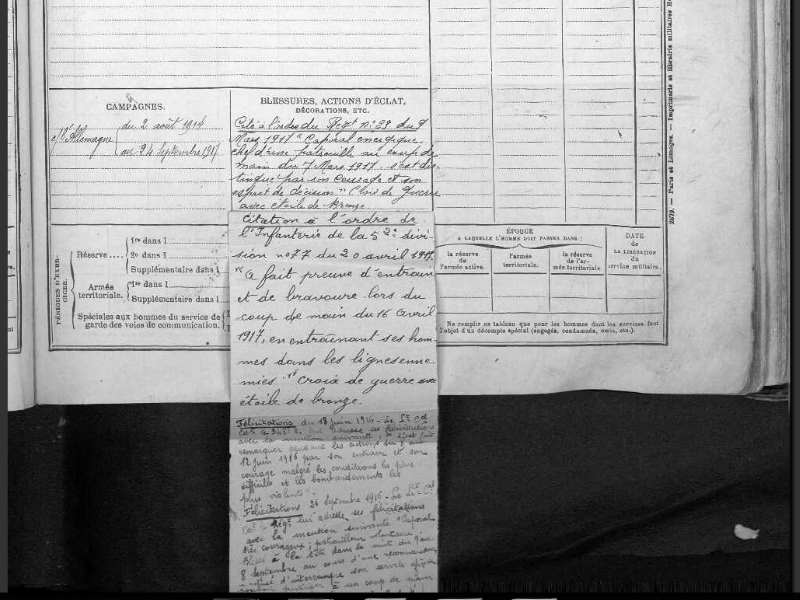 CAMPAGNES.
c/ l'Allemagne
du 2 août 1914
au 24 septembre 1917
BLESSURES, ACTIONS D'ÉCLAT,
DÉCORATIONS, ETC.
Cité à l'ordre du Rgt n° 29 du 9
Mars 1917 " Caporal énergique
chef d'une patrouille au coup de
main du 7 Mars 1917, s'est dis-
tingué par son courage et son
esprit de décision" Croix de Guerre
avec étoile de bronze
Citation à l'ordre de
l'Infanterie de la 52e divi-
sion n° 77 du 20 avril 1917.
"A fait preuve d'entrain
et de bravoure lors du
coup de main du 16 avril
1917, en entrainant ses hom-
mes dans les lignes enne-
mies." Croix de guerre avec
étoile de bronze.
Félicitations du 18 juin 1916 - Le Lt Cel
adresse ses félicitations
avec la mention suivante : "s'est fait
remarquer pendant les actions du 8 au
12 juin 1916 par son entrain et son
courage malgré les conditions les plus
difficiles et les bombardements les
plus violents".
Félicitations 26 septembre 1916 - Le Lt Cel
Ct le Régt lui adresse ses félicitations
avec la mention suivante "Caporal
très courageux, patrouilleur
à la tête dans la nuit du 7 au
8 septembre au cours d'une reconnaissance
a refusé d'interrompre son service
à un coup de main
PÉRIODES D'EXER-
CICES.
Réserve....
1re dans l
2e dans l
Supplémentaire dans l
Armée
territoriale.
1re dans l
Supplémentaire dans l
Spéciales aux hommes du service de
garde des voies de communication.
ÉPOQUE
A LAQUELLE L'HOMME DOIT PASSER DANS :
la réserve
de
l'armée active.
l'armée
territoriale.
la réserve
de l'ar-
mée territoriale.
DATE
de
LA LIBÉRATION
du
service militaire.
Ne remplir ce tableau que pour les hommes dont les services font
l'objet d'un décompte spécial (engagés, condamnés, omis, etc.).
Paris et Limoges. — Imprimerie et librairie militaires